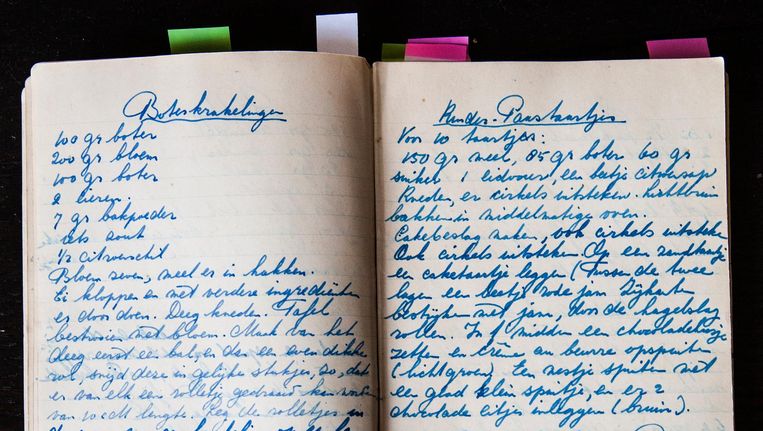 Boterkrakelingen
100 gr boter
200 gr bloem
100 gr boter
2 eieren
7 gr bakpoeder
iets zout
1/2 citroenschil
Bloem zeven, meel er in hakken.
Ei kloppen en met verdere ingrediënten
er door doen. Deeg kneden. Tafel
bestrooien met bloem. Maak van het
deeg eerst een bal, en dan een even dikke
rol, snijd deze in gelijke stukjes, zo, dat
er van elk een rolletje gedraaid kan worden
van 10 cM lengte. Leg de rolletjes in
Kinder-Paastaartjes
Voor 10 taartjes:
150 gr meel, 85 gr boter 60 gr
suiker 1 eidooier, een beetje citroensap
Kneden, er cirkels uitsteken. Lichtbruin
bakken in middelmatige oven.
Cakebeslag maken, ook cirkels uitsteken
Ook cirkels uitsteken. Op een zandtaartje
een caketaartje leggen (Tussen de twee
lagen een beetje rode jam. Zijkanten
bestrijken met jam, door de hagelslag
rollen. In 't midden een chocoladehaasje
zetten en crème au beurre opspuiten
(lichtgroen). Een nestje spuiten met
een glad klein spuitje, en er 2
chocolade eitjes inleggen (bruin).